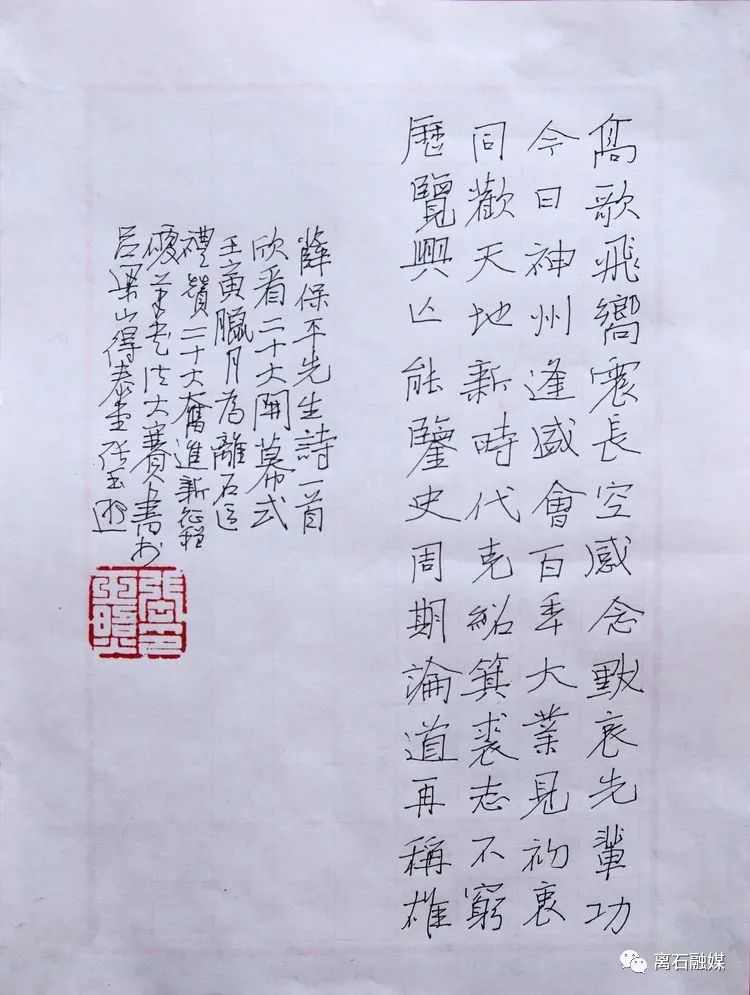 高歌飛嚮震長空感念默哀先輩功
今日神州逢盛會百年大業見初衷
同歡天地新時代克紹箕裘志不窮
歷覽興亡能鑒史周期論道再稱雄
薛保平先生詩一首
欣看二十大開幕式
壬寅臘月為離石區
禮贊二十大奮進新征程
硬筆書法大賽書於
呂梁山得泰堂張玉
离石融媒